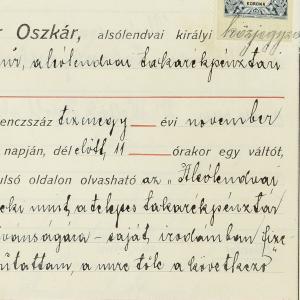 KORONA
r Oszkár, alsólendvai királyi közjegyző
úr, alsólendvai takarékpénztári
enczszáz tizenegy évi november
napján, délelőtt 11 órakor egy váltót,
ulsó oldalon olvasható az „Alsólendvai
oki mint, a telepes takarékpénztár
ívánságára – saját irodámban fize
mutattam, a mire tőle a következő